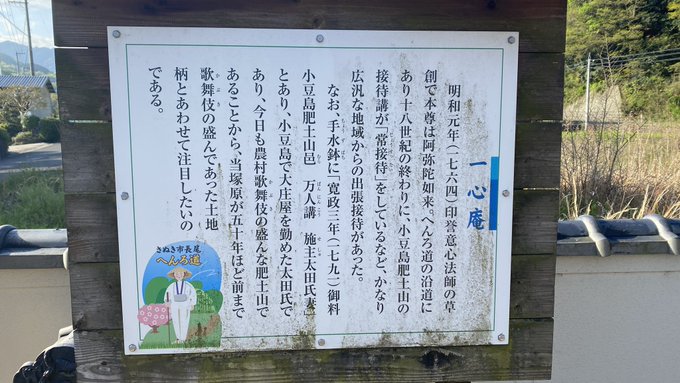 一心庵
明和元年（一七六四）印誉意心法師の草
創で本尊は阿弥陀如来。へんろ道の沿道に
あり十八世紀の終わりに、小豆島肥土山の
接待講が「常接待」をしているなど、かなり
広汎な地域からの出張接待があった。
なお、手水鉢に「寛政三年（一七九一）御料
小豆島肥土山邑　万人講　施主太田氏妻」
とあり、小豆島で大庄屋を勤めた太田氏で
あり、今日も農村歌舞伎の盛んな肥土山で
あることから、当塚原が五十年ほど前まで
歌舞伎の盛んであった土地
柄とあわせて注目したいの
である。
さぬき市長尾
へんろ道